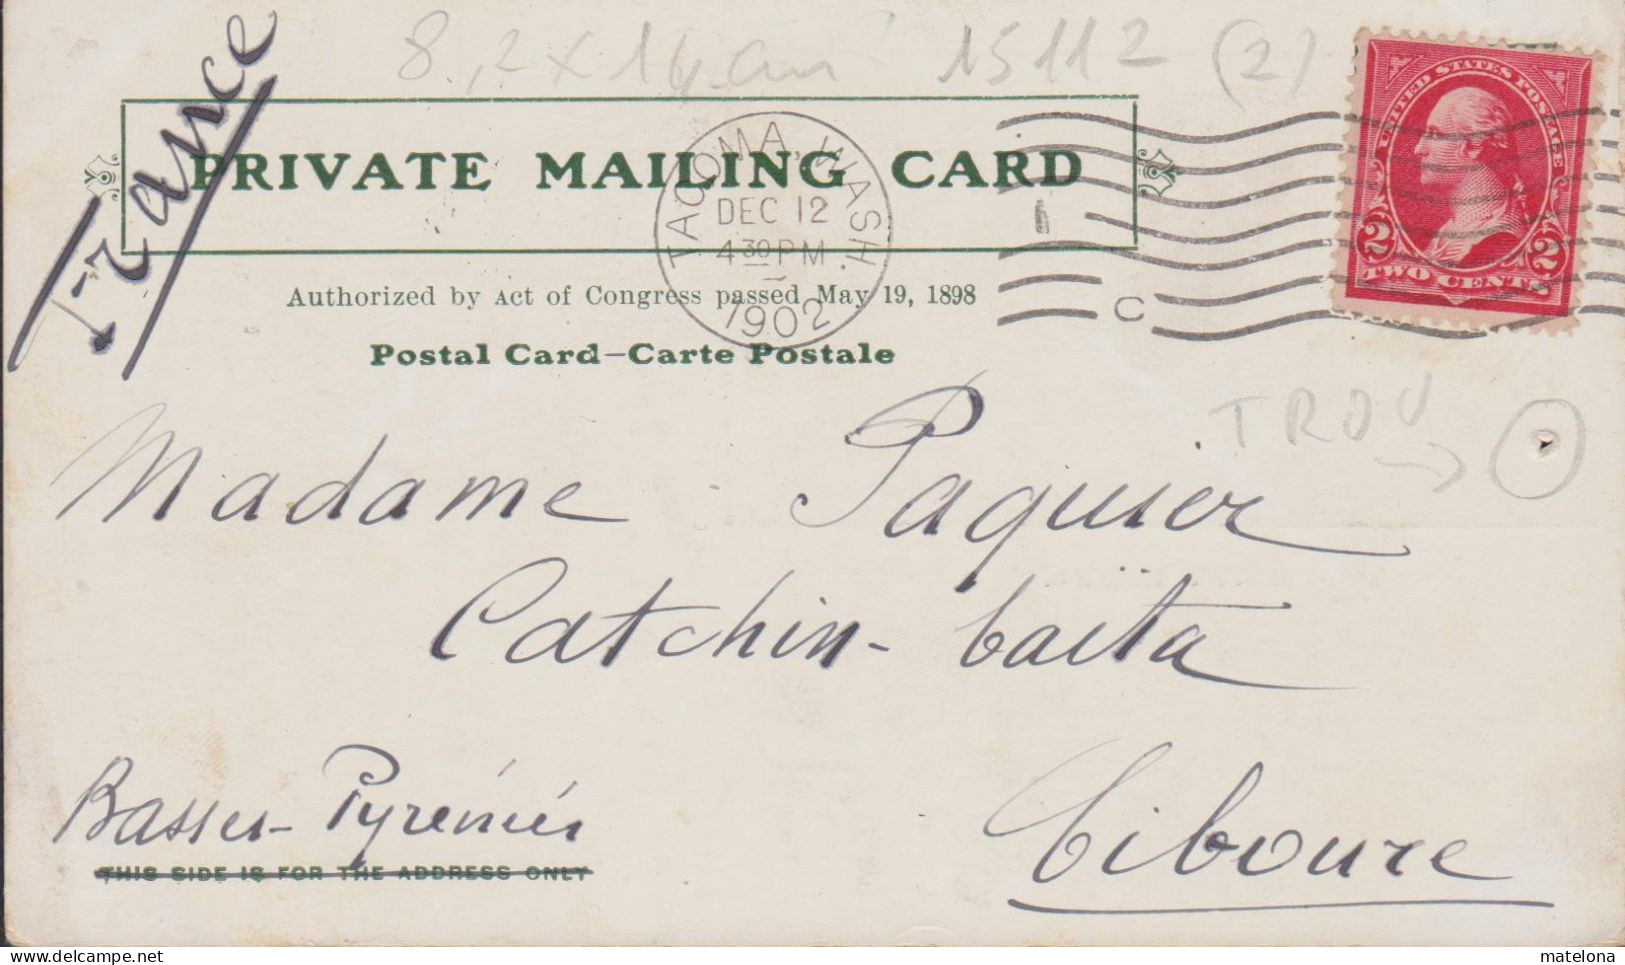 8,2 x 14 cm 15112 (2)
France
PRIVATE MAILING CARD
TACOMA, WASH.
DEC 12
4 30 PM
1902
1
C
UNITED STATES POSTAGE
2 2
TWO CENTS
Authorized by Act of Congress passed May 19, 1898
Postal Card–Carte Postale
TROU
Madame Paquier
Catchin-baïta
Basses-Pyrénées
THIS SIDE IS FOR THE ADDRESS ONLY
Ciboure
matelona